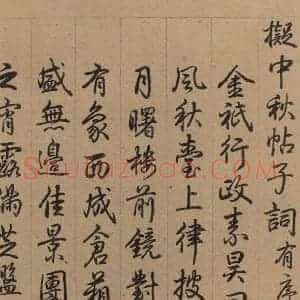 擬中秋帖子詞有序
金祇行政素昊
風秋臺上律
月曙梯前鏡對
有象西成倉箱
盛無邊佳景團
之宵露滿芝盤